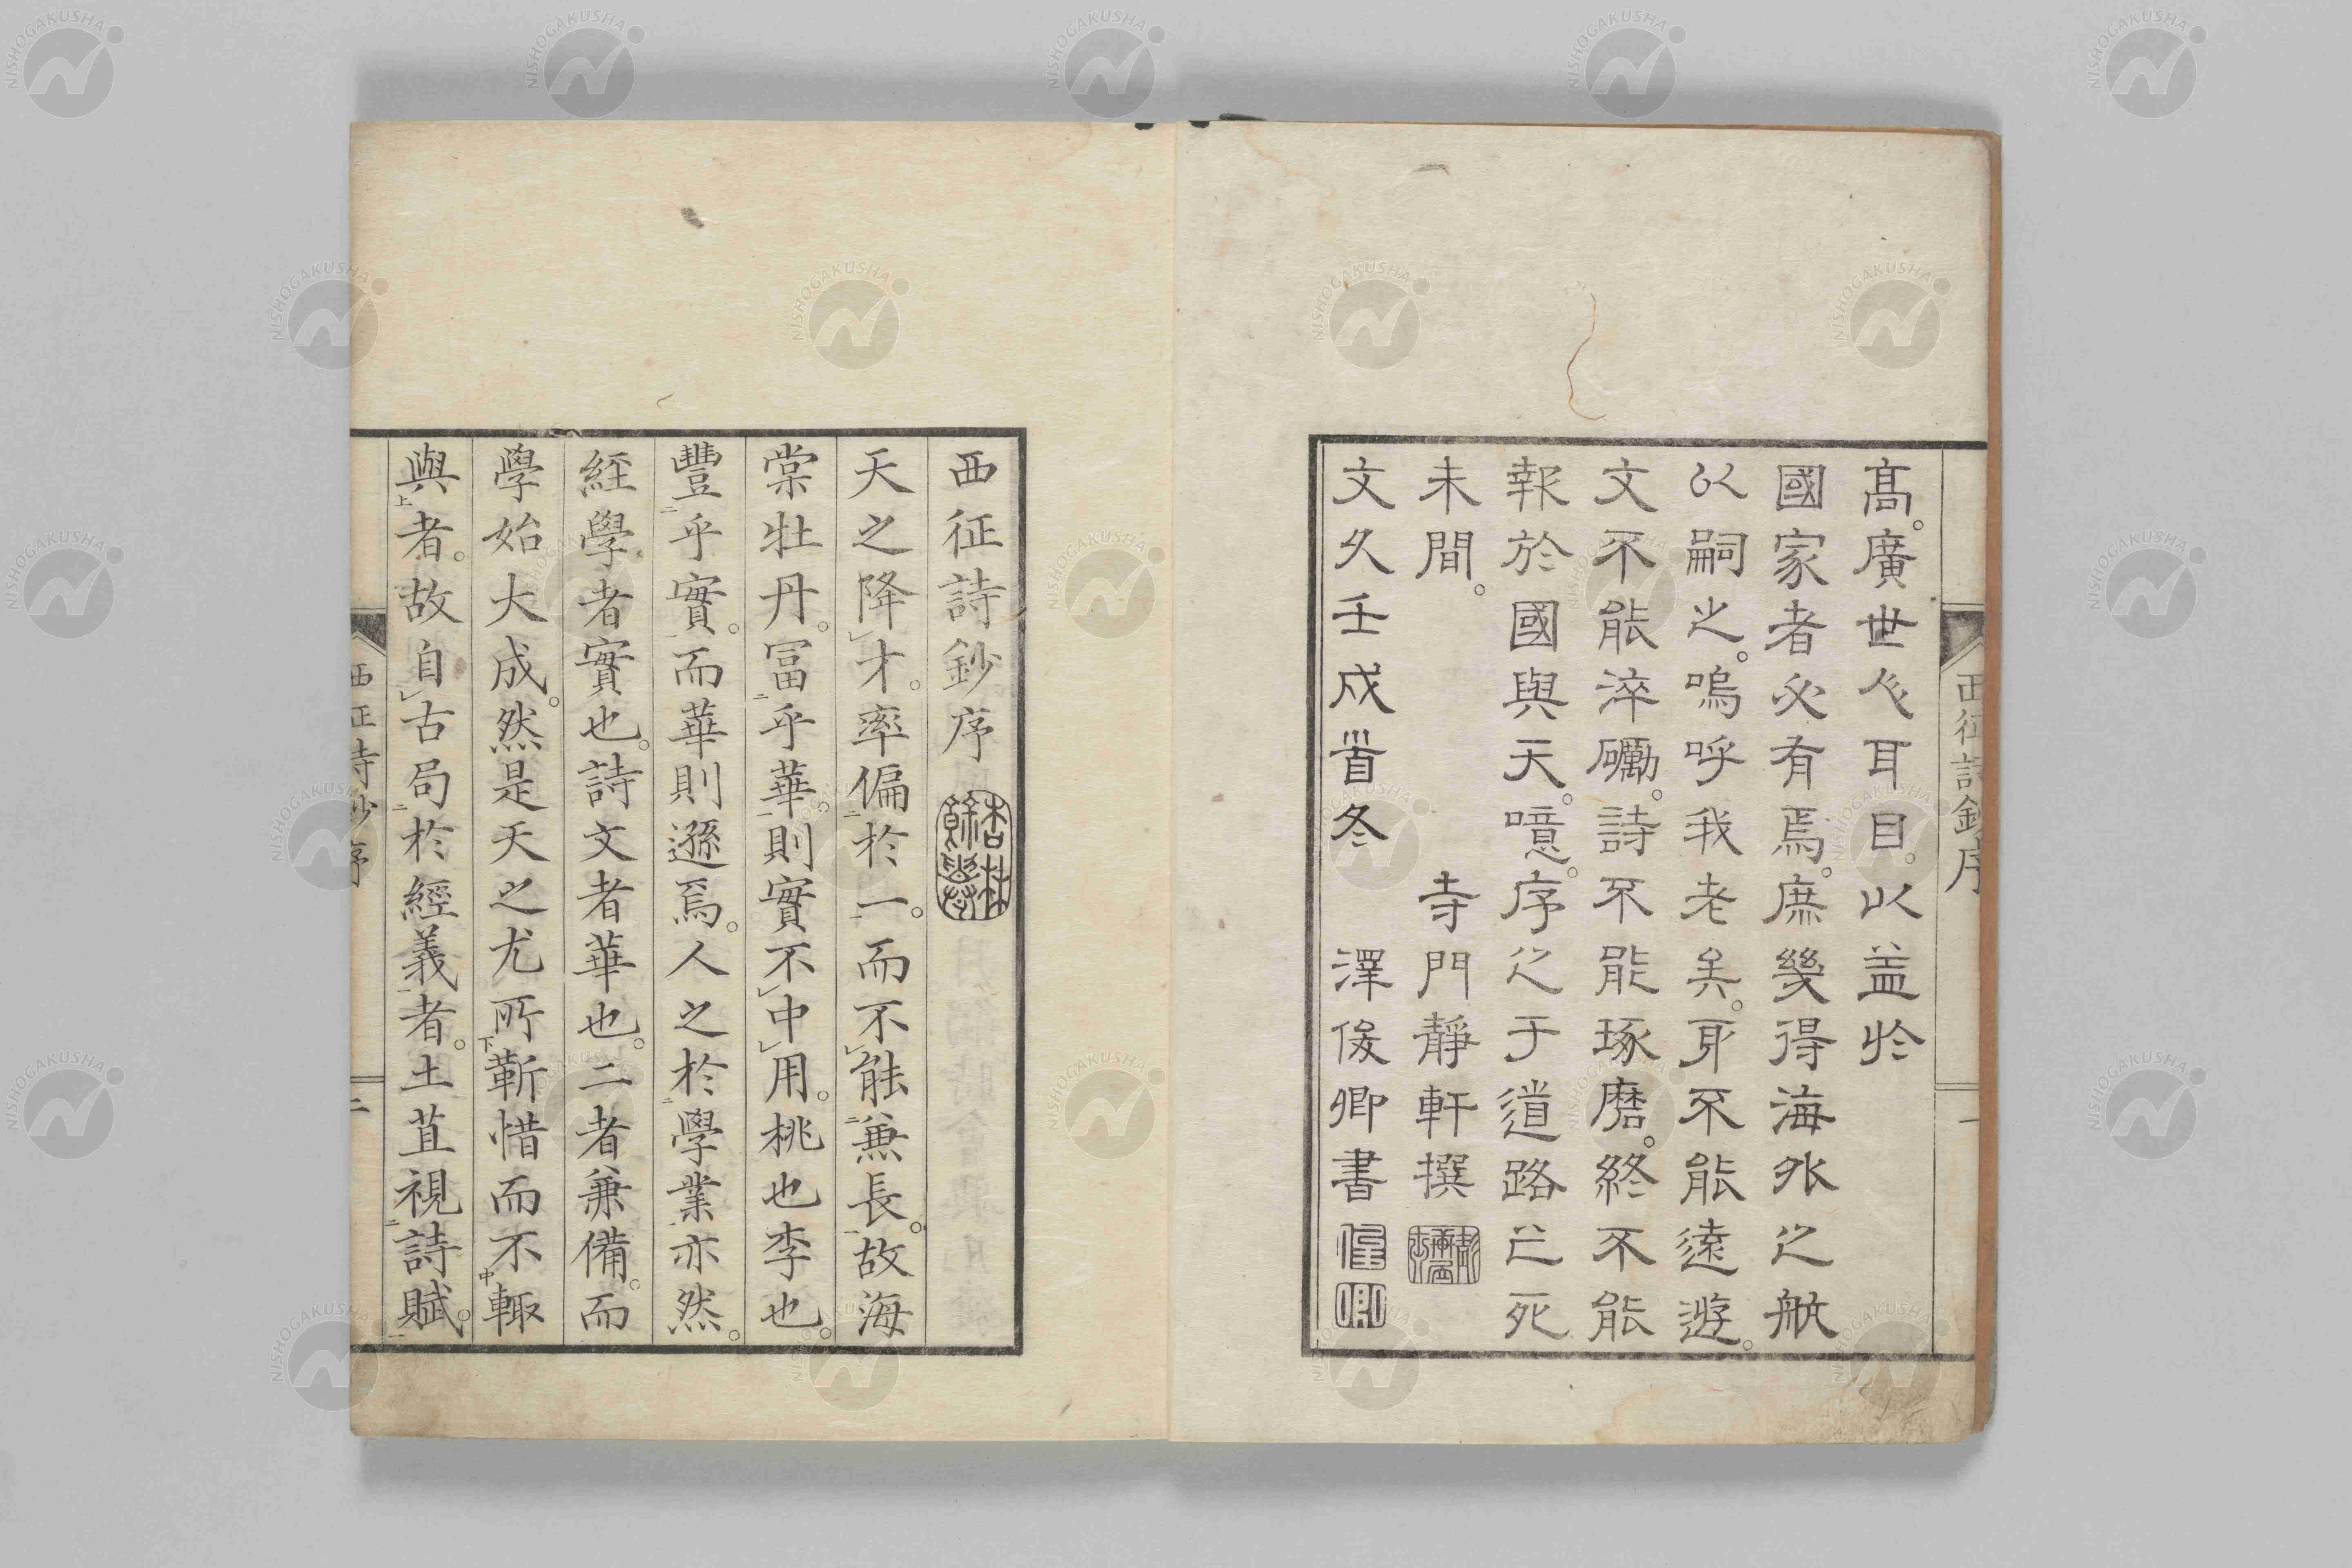 西征詩鈔序
一
高。廣世人耳目。以益於
國家者必有焉。庶幾得海外之航
以嗣之。嗚呼我老矣。身不能遠遊。
文不能淬礪。詩不能琢磨。終不能
報於國與天。噫。序之于道路亡死
未間。
寺門靜軒撰
文久壬戌首冬 澤俊卿書
俊卿
西征詩鈔序
天之降レ才。率偏二於一一。而不レ能二兼長一。故海
棠牡丹。富二乎華一。則實不レ中レ用。桃也李也。
豐二乎實一。而華則遜焉。人之於二學業一亦然。
経學者實也。詩文者華也。二者兼備。而
學始大成。然是天之尤所下蘄惜而不中輙
與上者。故自レ古局二於經義一者。土苴視二詩賦一。
西征詩鈔序
二
NISHOGAKUSHA